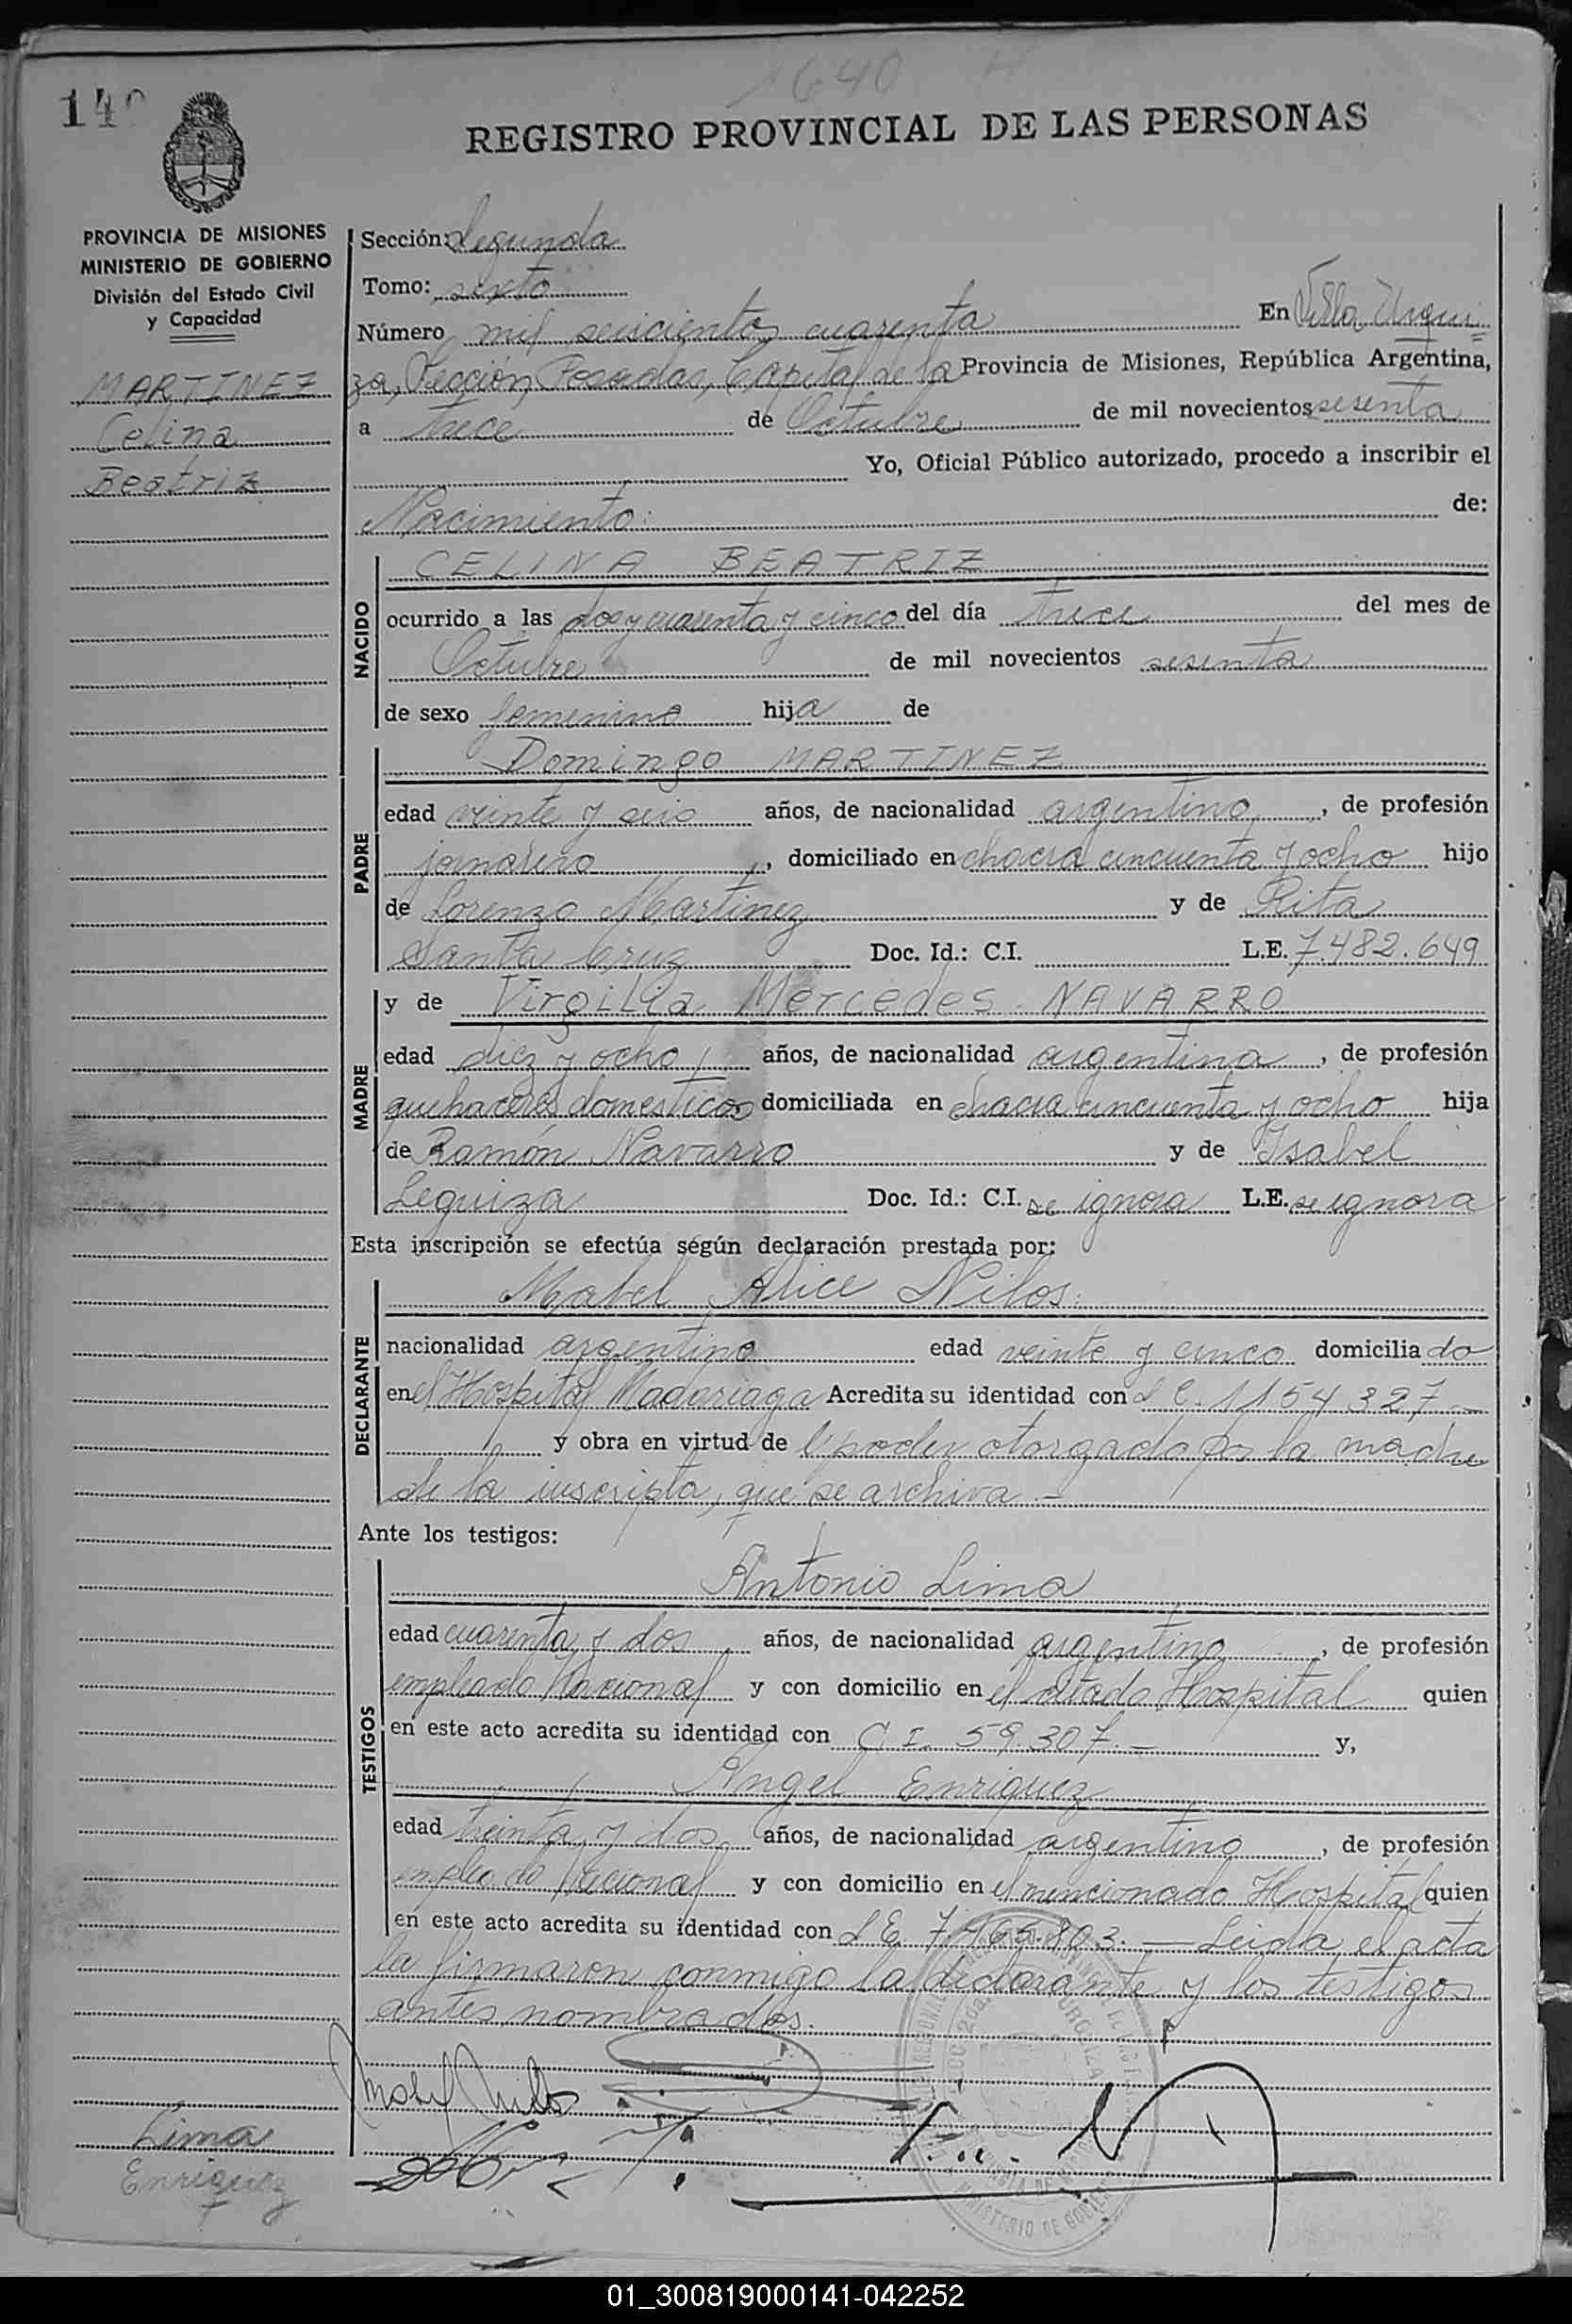 1640
REGISTRO PROVINCIAL DE LAS PERSONAS
PROVINCIA DE MISIONES
MINISTERIO DE GOBIERNO
División del Estado Civil
y Capacidad
MARTINEZ
Celina
Beatriz
Sección: Segunda
Tomo: sexto
Número mil seiscientos cuarenta En Villa Urqui
za, Sección, Posadas, Capital de la Provincia de Misiones, República Argentina,
a trece de Octubre de mil novecientos sesenta
Yo, Oficial Público autorizado, procedo a inscribir el
Nacimiento: de:
NACIDO
CELINA BEATRIZ
ocurrido a las dos y cuarenta y cinco del día trece del mes de
Octubre de mil novecientos sesenta
de sexo femenino hija de
PADRE
Domingo MARTINEZ
edad veinte y seis años, de nacionalidad argentino, de profesión
jornalero, domiciliado en chacra cincuenta y ocho hijo
de Lorenzo Martinez y de Rita
Santa Cruz Doc. Id.: C.I. L.E. 7.482.649
MADRE
y de Virgilia Mercedes NAVARRO
edad diez y ocho años, de nacionalidad argentina, de profesión
quehaceres domesticos domiciliada en chacra cincuenta y ocho hija
de Ramón Navarro y de Isabel
Leguiza Doc. Id.: C.I. se ignora L.E. se ignora
Esta inscripción se efectúa según declaración prestada por:
DECLARANTE
Mabel Alice Nilos:
nacionalidad argentina edad veinte y cinco domiciliado
en el Hospital Madariaga Acredita su identidad con L C. 1154327 —
y obra en virtud de l poder otorgado por la madre
de la inscripta, que se archiva.-
Ante los testigos:
TESTIGOS
Antonio Lima
edad cuarenta y dos años, de nacionalidad argentino, de profesión
empleado Nacional y con domicilio en el citado Hospital quien
en este acto acredita su identidad con C. I. 59.307.— y,
Angel Enriquez
edad treinta y dos años, de nacionalidad argentino, de profesión
empleado Nacional y con domicilio en el mencionado Hospital quien
en este acto acredita su identidad con L E. 7.465.803.— Leida el acta
la firmaron conmigo la declarante y los testigos
antes nombrados.
Lima
Enriquez
01_300819000141-042252